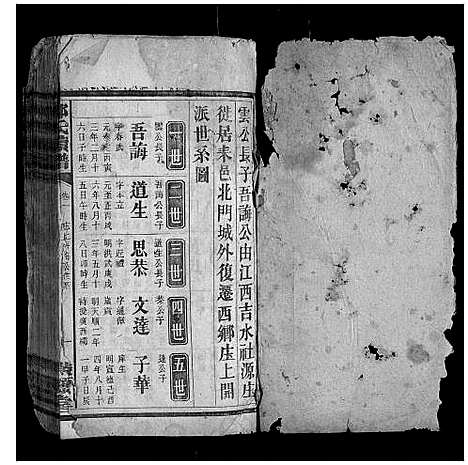 雲公長子吾誨公由江西吉水社源庄
徙居耒邑北門城外復遷西鄉庄上開
派世系圖
一世
雲公長子
吾誨
字春武
三年二月十
六日子時生
二世
吾誨公長子
道生
字本立
六年八月十
五日午時生
三世
道生公長子
思恭
字起禮
明洪武庚戌
三年五月十
八日卯時生
四世
恭公子
文達
明天順二年
五世
達公子
子華
庠生
明宣德己酉
四年八月十
一甲子日辰
氏族譜